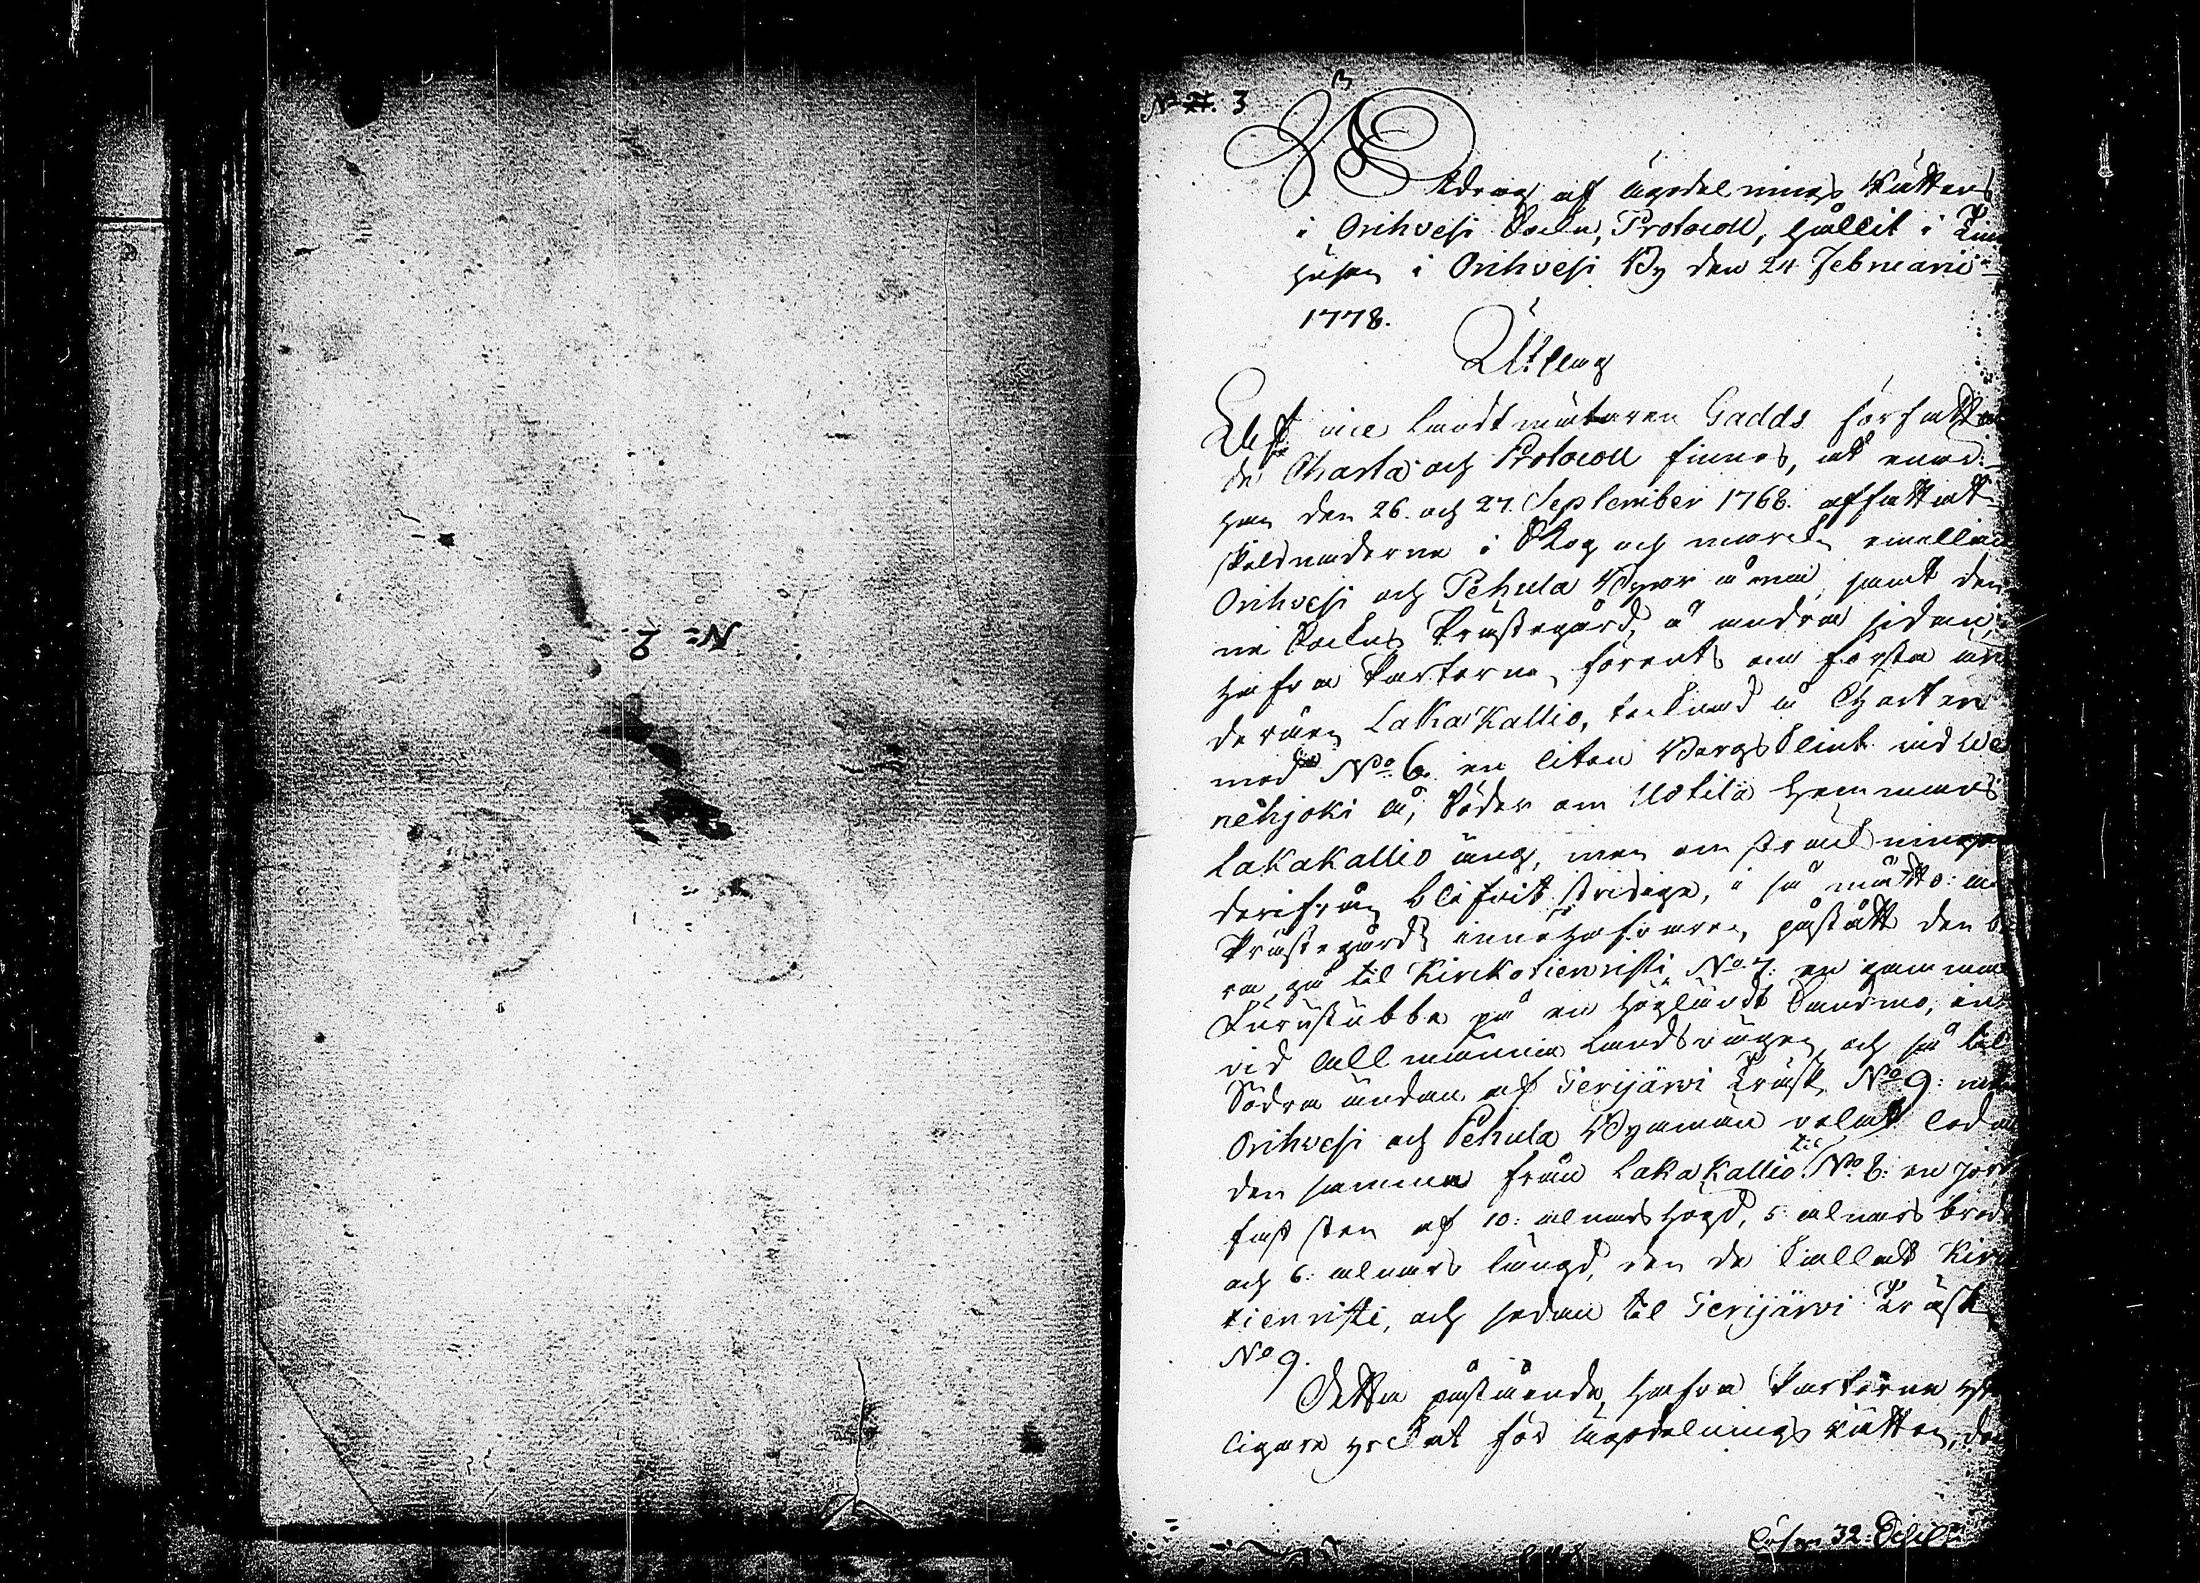 No 2.
No 21. 3
Utdrag af Ägodelnings Rättens
i Orihvesi Sockn, Protocoll, hållit i
husen i Orihvesi By den 24 Februarii
1778.
Utslag
Utaf vice Landtmätaren Gadds författa
de Charta och Protocoll finnes, at
den 26. och 27. September 1768. affattat
skildnaderne i Skog och marck emellan
Orihvesi och Pehula Byar å ena, samt den
ne Sockns Prästegård, å andra sidan,
hafva Parterne, förents om första
deråen LakaKallio, tecknad å Chartan
med No 6. en liten Bergsklint vid
nehjoki å, Söder om Uotila Hemmans
LakaKallio äng, men om sträckningen
derifrån blifvit stridige, i så måtto: at
Prästegårds innehafvaren påstått den
ra, gå til Kirkotienristi No 7: en gammal
Furustubbe på en högländt Sandmo, in
vid allmänna Landsvägen, och så til
Södra ändan af Terijärvi Träsk, No 9: men
Orihvesi och Pehula Byamän velat leda
den samma från LakaKallio til No 8: en jord
fast sten af 10: alnars högd, 5: alnars bred
och 6: alnars längd, den de kallat Kirko
tienristi, och sedan til Terijärvi Träsk
No 9.
Detta påstående, hafva Parterne
ligare yrckat för Ägodelnings Rätten,
Lösen 32. Schill:r